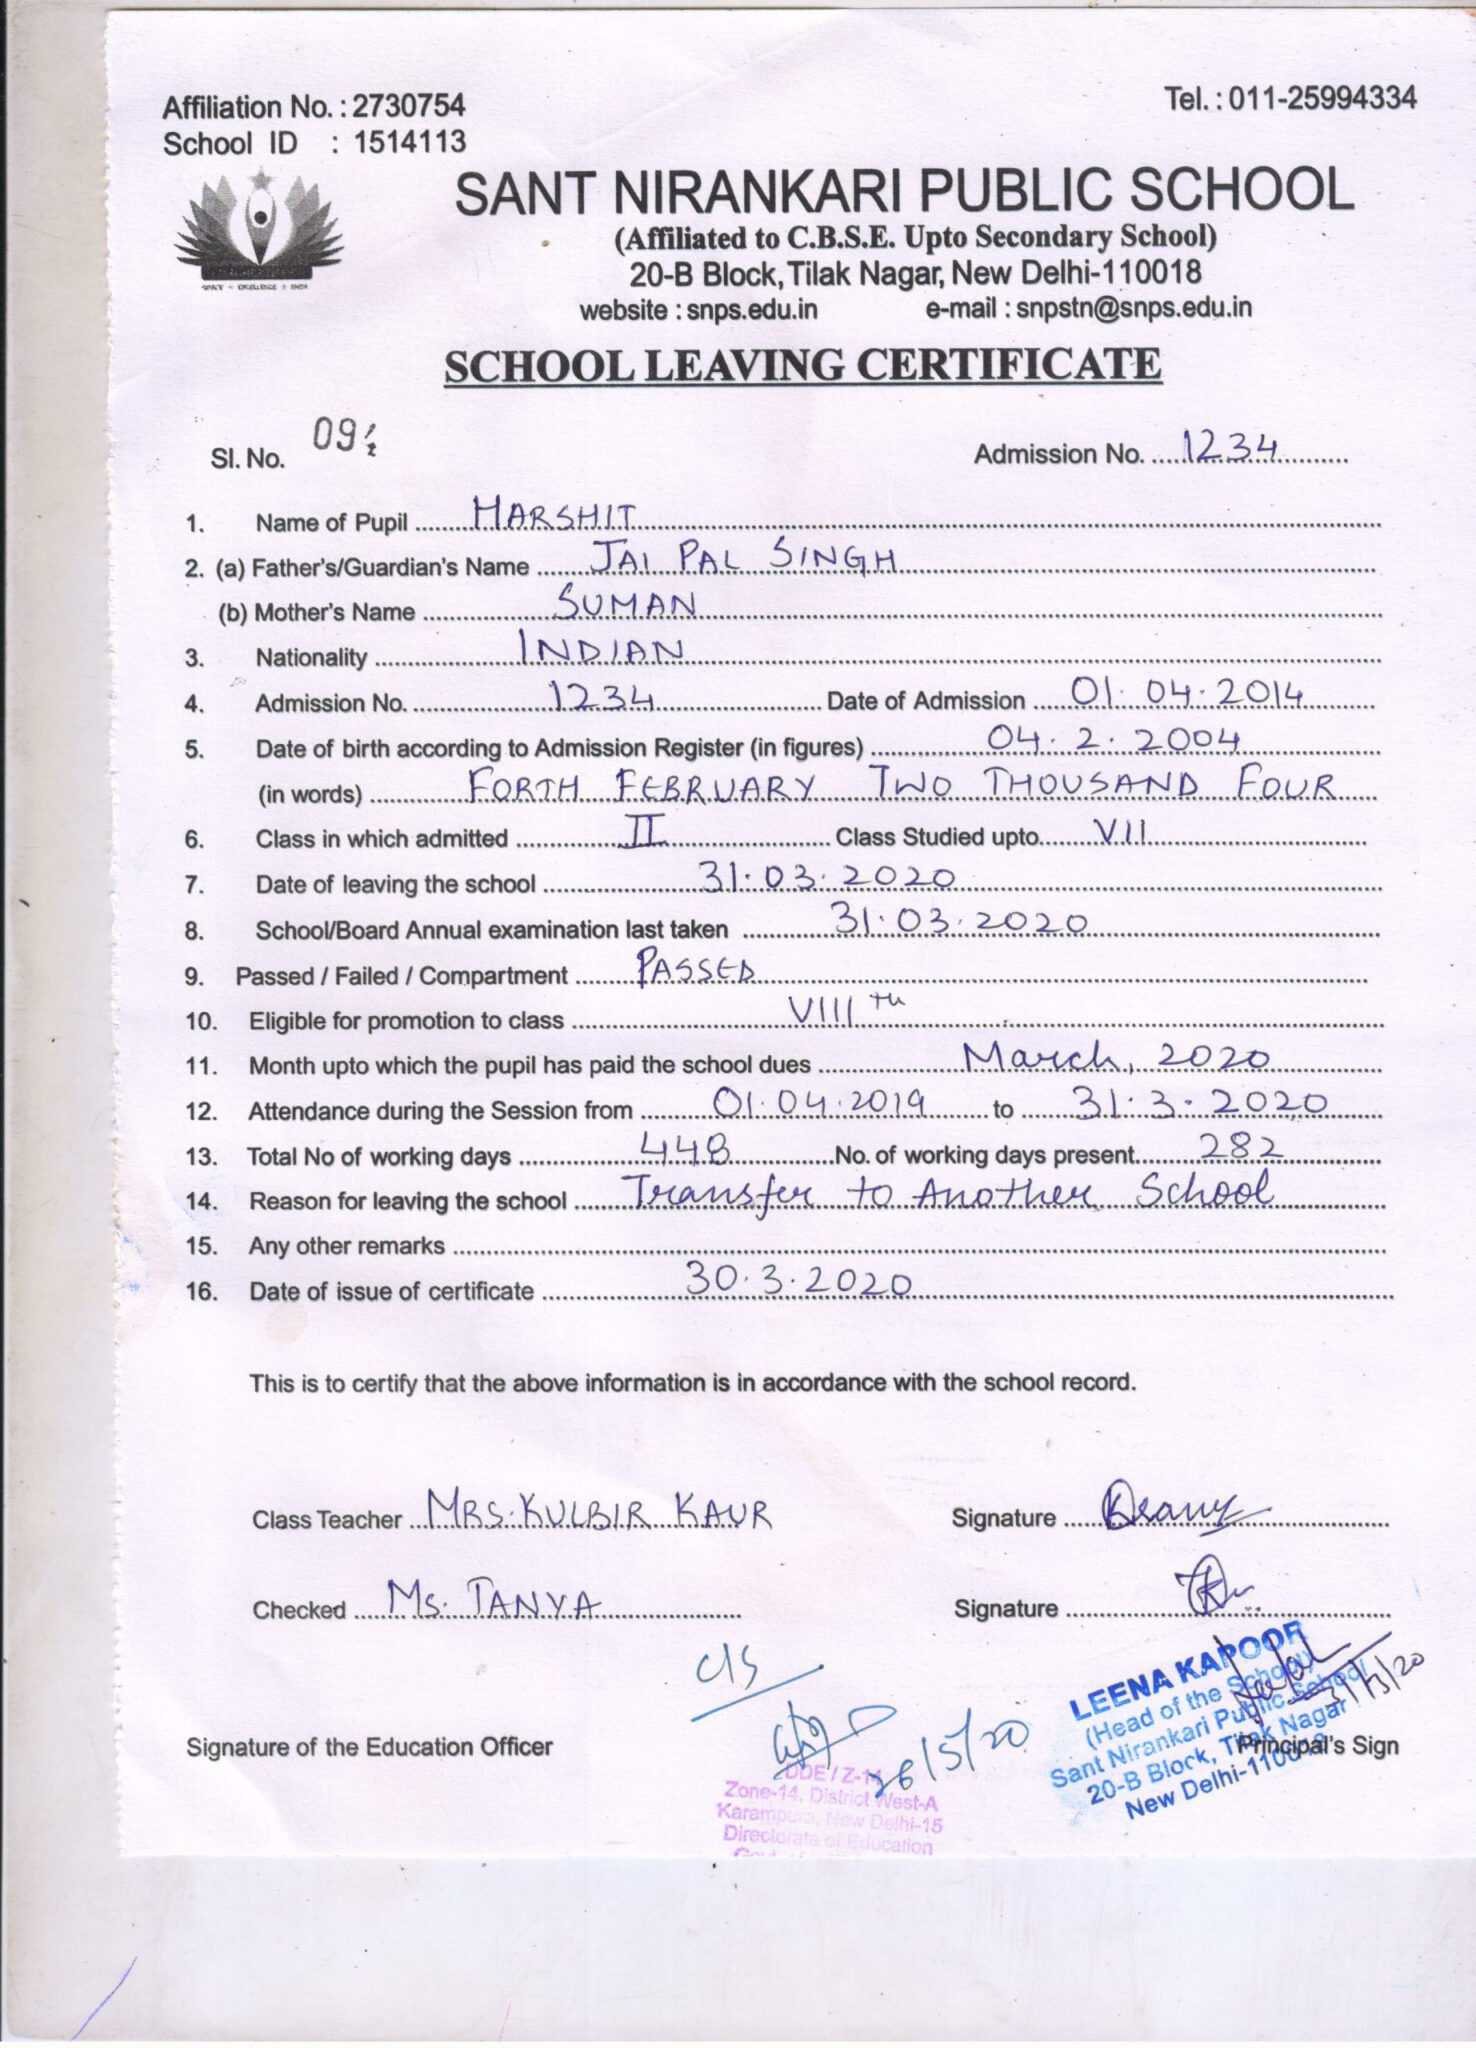 Affiliation No. : 2730754
Tel. : 011-25994334
School ID : 1514113
SANT NIRANKARI PUBLIC SCHOOL
(Affiliated to C.B.S.E. Upto Secondary School)
20-B Block, Tilak Nagar, New Delhi-110018
website : snps.edu.in e-mail : snpstn@snps.edu.in
SCHOOL LEAVING CERTIFICATE
Sl. No.
Admission No. 1234
1. Name of Pupil HARSHIT
2. (a) Father's/Guardian's Name JAI PAL SINGH
(b) Mother's Name SUMAN
3. Nationality INDIAN
4. Admission No. 1234 Date of Admission 01.04.2014
5. Date of birth according to Admission Register (in figures) 04.2.2004
(in words) FORTH FEBRUARY TWO THOUSAND FOUR
6. Class in which admitted II Class Studied upto VII
7. Date of leaving the school 31.03.2020
8. School/Board Annual examination last taken 31.03.2020
9. Passed / Failed / Compartment PASSED
10. Eligible for promotion to class VIIIth
11. Month upto which the pupil has paid the school dues March, 2020
12. Attendance during the Session from 01.04.2019 to 31.3.2020
13. Total No of working days 448 No. of working days present 282
14. Reason for leaving the school Transfer to Another School
15. Any other remarks
16. Date of issue of certificate 30.3.2020
This is to certify that the above information is in accordance with the school record.
Class Teacher MRS. KULBIR KAUR Signature
Checked Ms. TANYA Signature
C/S
LEENA KAPOOR
(Head of the School)
Sant Nirankari Public School
20-B Block, Tilak Nagar
New Delhi-110018
31/3/20
Signature of the Education Officer
26/5/20
Principal's Sign
DDE / Z-14
Zone-14, District West-A
Karampura, New Delhi-15
Directorate of Education